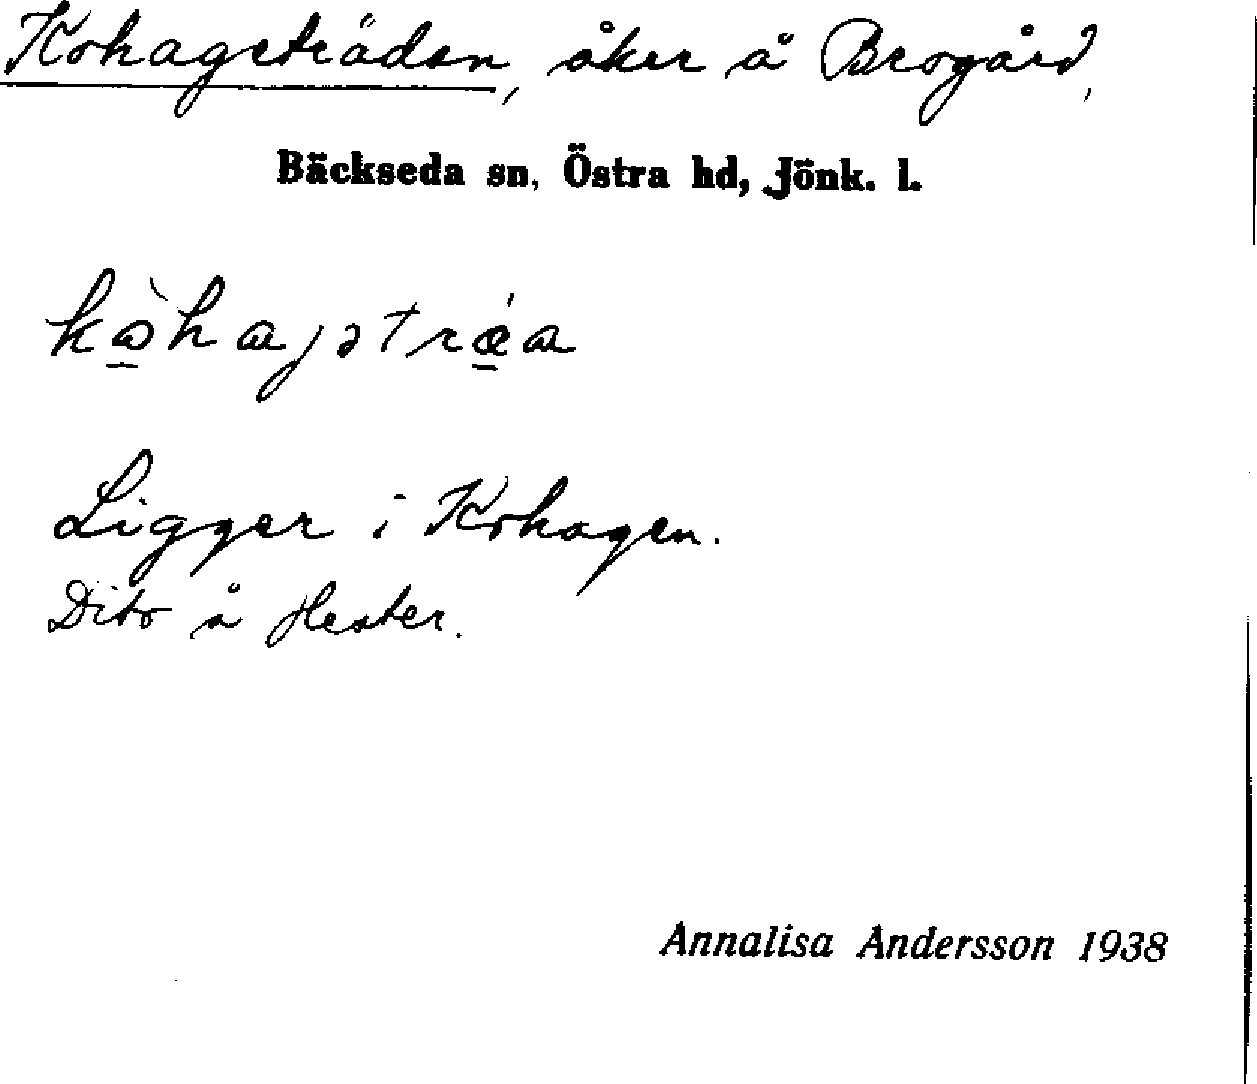 Kohageträdan, åker å Brogård,
Bäckseda sn, Östra hd, Jönk. l.
kǫ̀haɡətrǽa
Ligger i Kohagen.
Dito å Hester.
Annalisa Andersson 1938